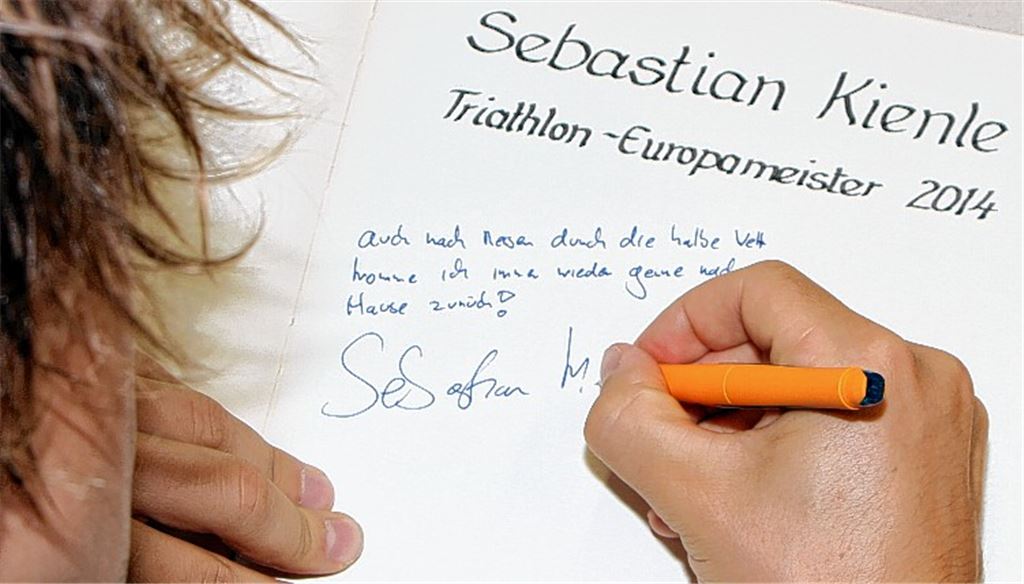 Sebastian Kienle
Triathlon-Europameister 2014
Auch nach Reisen durch die halbe Welt
komme ich immer wieder gerne nach
Hause zurück!
Sebastian Ki